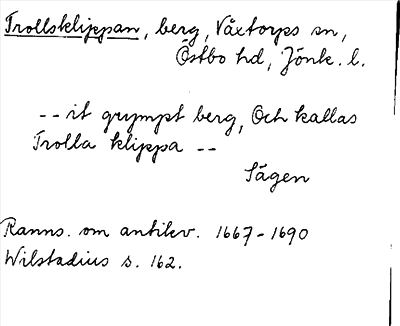 Trollsklippan, berg, Våxtorps sn,
Östbo hd, Jönk. l.
-- it grympt berg, Och kallas
Trolla klippa --
Sägen
Ranns. om antikv. 1667-1690
Wilstadius s. 162.